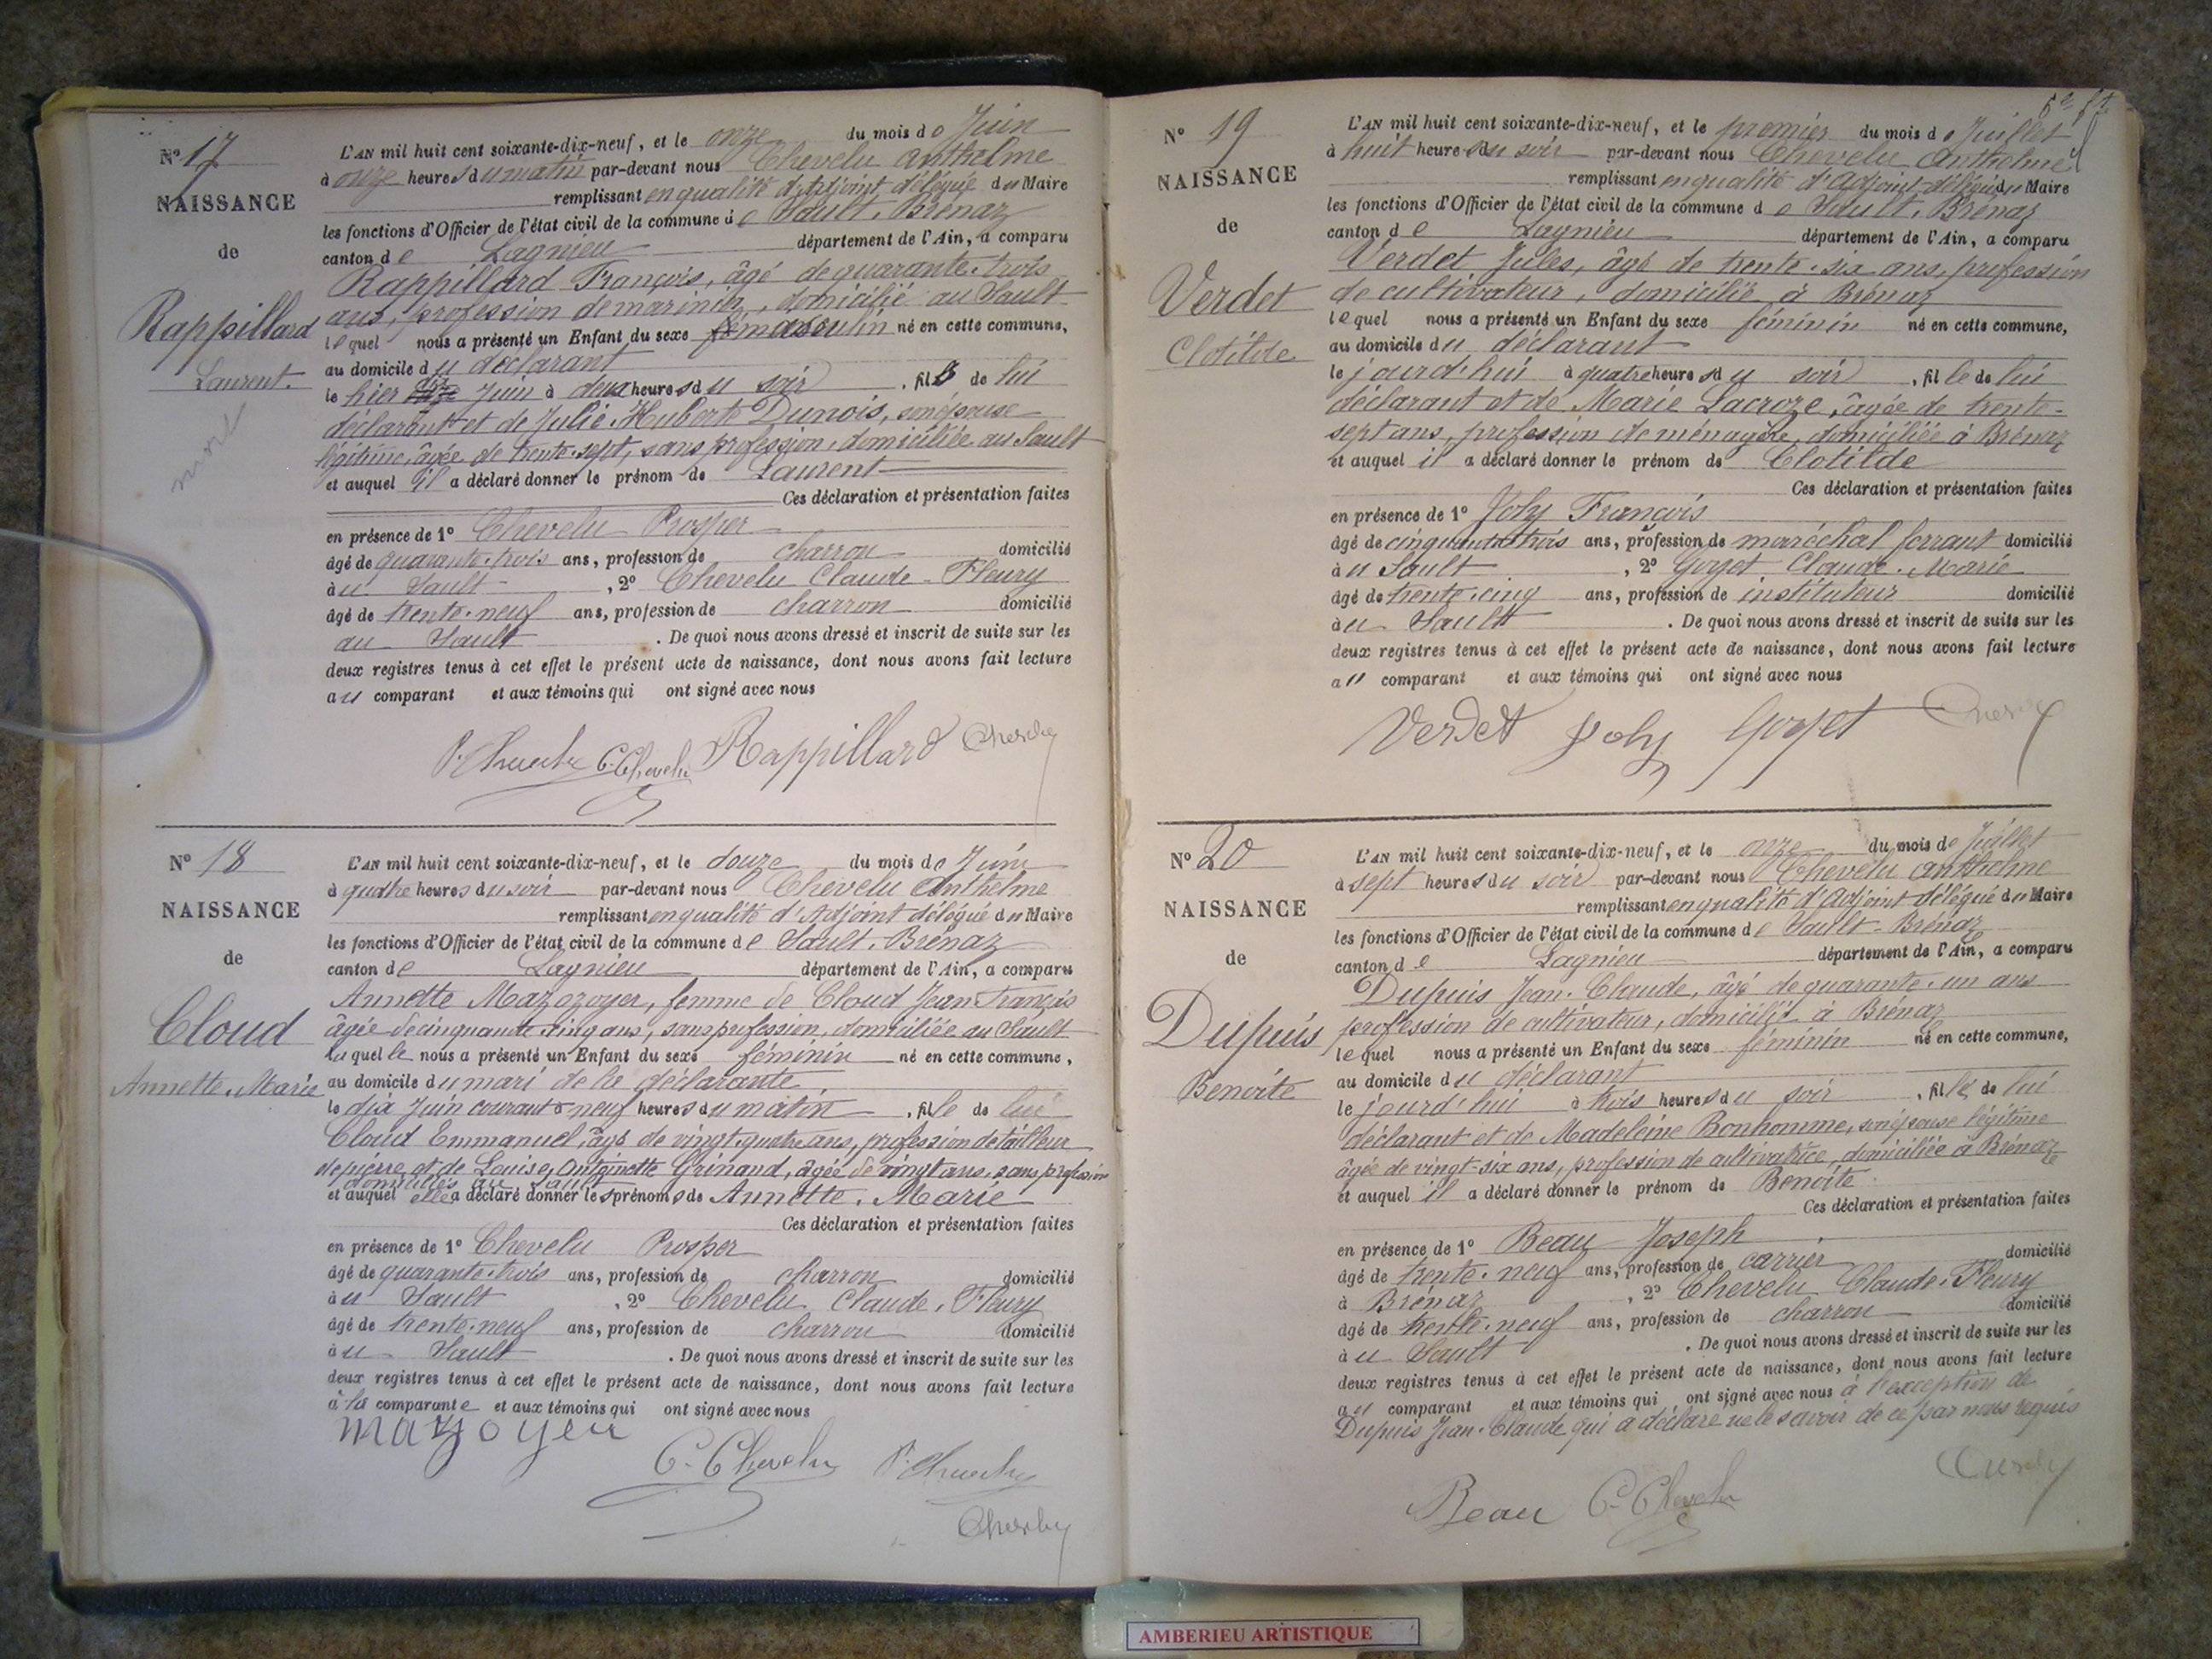 N° 17
NAISSANCE
de
Rappillard
Laurent.
mort
L'AN mil huit cent soixante-dix-neuf, et le onze du mois de Juin
à onze heures du matin par-devant nous Chevelu Anthelme
remplissant en qualité d'Adjoint délégué du Maire
les fonctions d'Officier de l'état civil de la commune de Sault-Brénaz
canton de Lagnieu département de l'Ain, a comparu
Rappillard François, âgé de quarante-trois
ans, profession de marinier, domicilié au Sault
lequel nous a présenté un Enfant du sexe masculin né en cette commune,
au domicile du déclarant
le hier dix Juin à deux heures du soir, fils de lui
déclarant et de Julie Huberte Dunois, son épouse
légitime, âgée de trente-sept, sans profession, domiciliée au Sault
et auquel il a déclaré donner le prénom de Laurent
Ces déclaration et présentation faites
en présence de 1° Chevelu Prosper
âgé de quarante-trois ans, profession de charron domicilié
au Sault, 2° Chevelu Claude-Fleury
âgé de trente-neuf ans, profession de charron domicilié
au Sault. De quoi nous avons dressé et inscrit de suite sur les
deux registres tenus à cet effet le présent acte de naissance, dont nous avons fait lecture
au comparant et aux témoins qui ont signé avec nous
C. Chevelu Rappillard
N° 18
NAISSANCE
de
Cloud
Annette-Marie
L'AN mil huit cent soixante-dix-neuf, et le douze du mois de Juin
à quatre heures du soir par-devant nous Chevelu Anthelme
remplissant en qualité d'Adjoint délégué du Maire
les fonctions d'Officier de l'état civil de la commune de Sault-Brénaz
canton de Lagnieu département de l'Ain, a comparu
Annette Mazozoyer, femme de Cloud Jean François
âgée de cinquante cinq ans, sans profession, domiciliée au Sault
laquelle nous a présenté un Enfant du sexe féminin né en cette commune,
au domicile du mari de la déclarante
le dix Juin courant à neuf heures du matin, fille de lui
Cloud Emmanuel, âgé de vingt-quatre ans, profession de tailleur
de pierre et de Louise, Antoinette Grinand, âgée de vingt ans, sans profession
domiciliés au Sault
et auquel elle a déclaré donner les prénoms de Annette-Marie
Ces déclaration et présentation faites
en présence de 1° Chevelu Prosper
âgé de quarante-trois ans, profession de charron domicilié
au Sault, 2° Chevelu Claude-Fleury
âgé de trente-neuf ans, profession de charron domicilié
au Sault. De quoi nous avons dressé et inscrit de suite sur les
deux registres tenus à cet effet le présent acte de naissance, dont nous avons fait lecture
à la comparante et aux témoins qui ont signé avec nous
mazoyer
C. Chevelu
N° 19
NAISSANCE
de
Verdet
Clotilde
L'AN mil huit cent soixante-dix-neuf, et le premier du mois de Juillet
à huit heures du soir par-devant nous Chevelu Anthelme
remplissant en qualité d'Adjoint délégué du Maire
les fonctions d'Officier de l'état civil de la commune de Sault-Brénaz
canton de Lagnieu département de l'Ain, a comparu
Verdet Jules, âgé de trente-six ans, profession
de cultivateur, domicilié à Brénaz
lequel nous a présenté un Enfant du sexe féminin né en cette commune,
au domicile du déclarant
le jourd'hui à quatre heures du soir, fille de lui
déclarant et de Marie Lacroze, âgée de trente-
sept ans, profession de ménagère, domiciliée à Brénaz
et auquel il a déclaré donner le prénom de Clotilde
Ces déclaration et présentation faites
en présence de 1° Joly François
âgé de cinquante trois ans, profession de maréchal ferrant domicilié
au Sault, 2° Goyet Claude-Marie
âgé de trente-cinq ans, profession de instituteur domicilié
au Sault. De quoi nous avons dressé et inscrit de suite sur les
deux registres tenus à cet effet le présent acte de naissance, dont nous avons fait lecture
au comparant et aux témoins qui ont signé avec nous
Verdet Joly Goyet
N° 20
NAISSANCE
de
Dupuis
Benoîte
L'AN mil huit cent soixante-dix-neuf, et le onze du mois de Juillet
à sept heures du soir par-devant nous Chevelu Anthelme
remplissant en qualité d'Adjoint délégué du Maire
les fonctions d'Officier de l'état civil de la commune de Sault-Brénaz
canton de Lagnieu département de l'Ain, a comparu
Dupuis Jean-Claude, âgé de quarante-un ans
profession de cultivateur, domicilié à Brénaz
lequel nous a présenté un Enfant du sexe féminin né en cette commune,
au domicile du déclarant
le jourd'hui à trois heures du soir, fille de lui
déclarant et de Madeleine Bonhomme, son épouse légitime
âgée de vingt-six ans, profession de cultivatrice, domiciliée à Brénaz
et auquel il a déclaré donner le prénom de Benoîte
Ces déclaration et présentation faites
en présence de 1° Beau Joseph
âgé de trente-neuf ans, profession de carrier domicilié
à Brénaz, 2° Chevelu Claude-Fleury
âgé de trente-neuf ans, profession de charron domicilié
au Sault. De quoi nous avons dressé et inscrit de suite sur les
deux registres tenus à cet effet le présent acte de naissance, dont nous avons fait lecture
au comparant et aux témoins qui ont signé avec nous à l'exception de
Dupuis Jean-Claude qui a déclaré ne le savoir de ce par nous requis
Beau C. Chevelu
AMBERIEU ARTISTIQUE